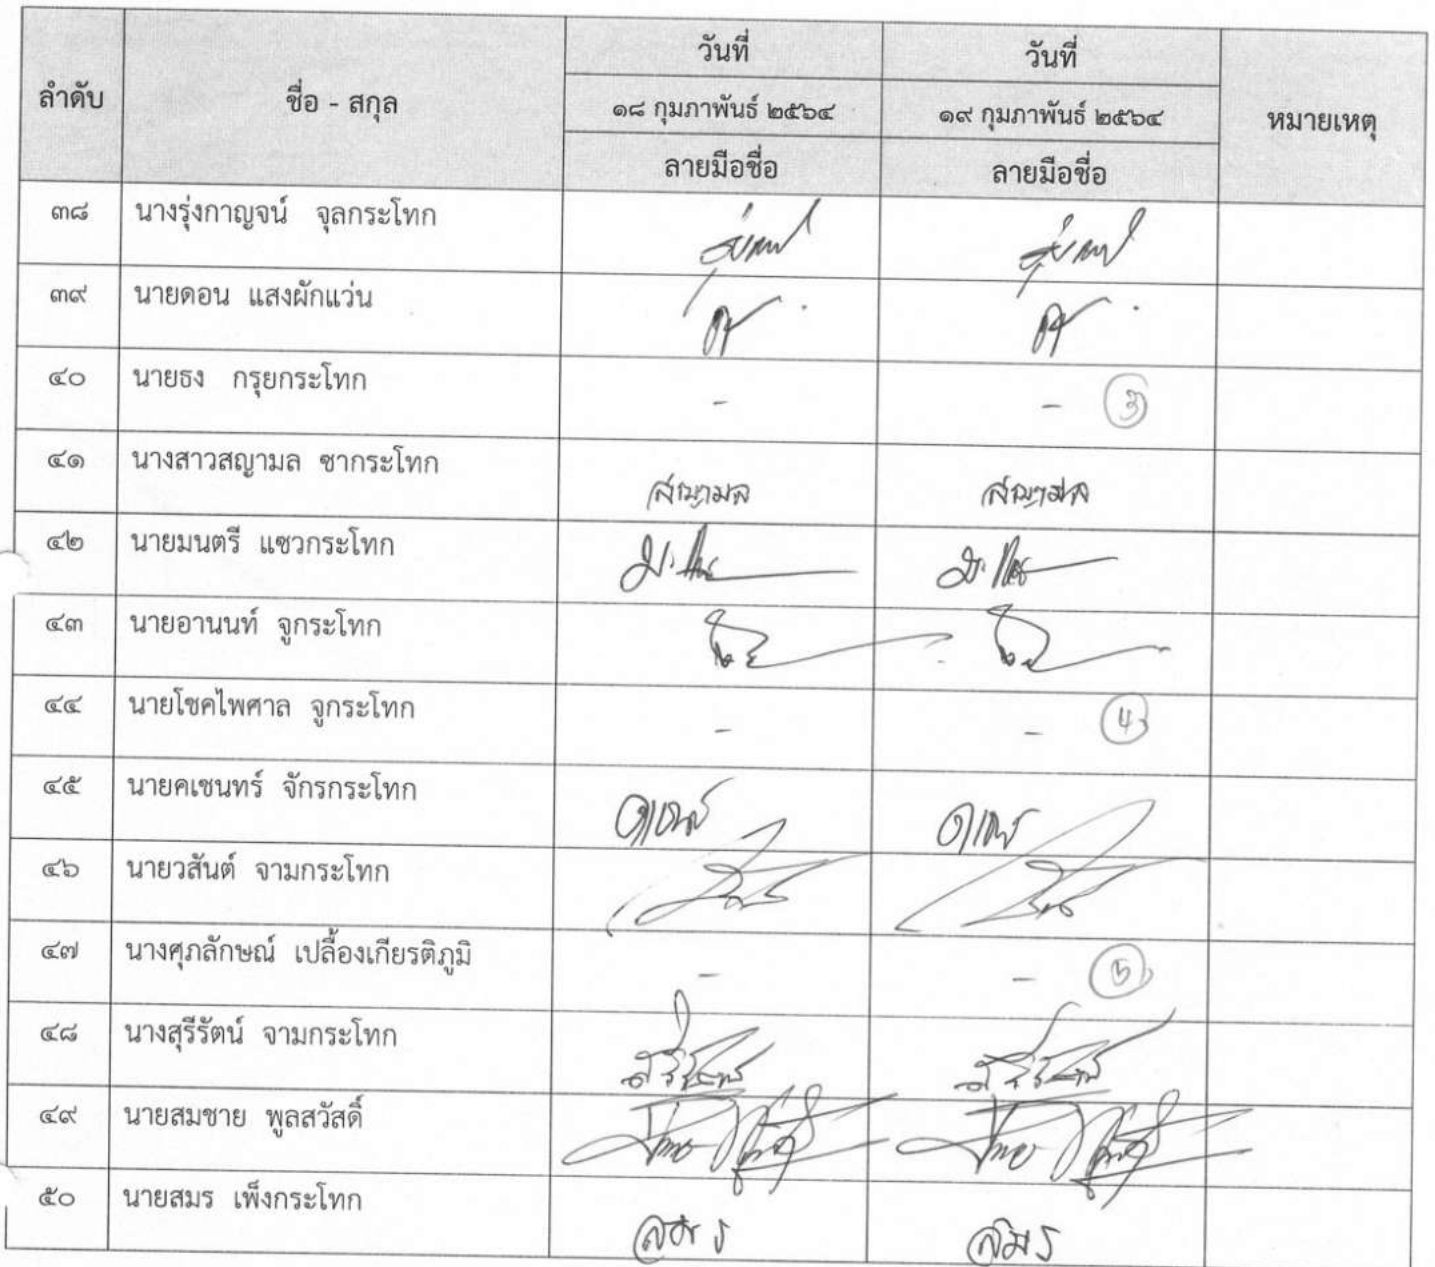 ลำดับ ชื่อ - สกุล วันที่ วันที่ หมายเหตุ
๑๘ กุมภาพันธ์ ๒๕๖๔ ๑๙ กุมภาพันธ์ ๒๕๖๔
ลายมือชื่อ ลายมือชื่อ
๓๘ นางรุ่งกาญจน์ จุลกระโทก
๓๙ นายดอน แสงผักแว่น
๔๐ นายธง กรุยกระโทก - - 3
๔๑ นางสาวสญามล ซากระโทก สญามล สญามล
๔๒ นายมนตรี แซวกระโทก
๔๓ นายอานนท์ จูกระโทก
๔๔ นายโชคไพศาล จูกระโทก - - 4
๔๕ นายคเชนทร์ จักรกระโทก
๔๖ นายวสันต์ จามกระโทก
๔๗ นางศุภลักษณ์ เปลื้องเกียรติภูมิ - - 5
๔๘ นางสุรีรัตน์ จามกระโทก
๔๙ นายสมชาย พูลสวัสดิ์
๕๐ นายสมร เพ็งกระโทก สมร สมร